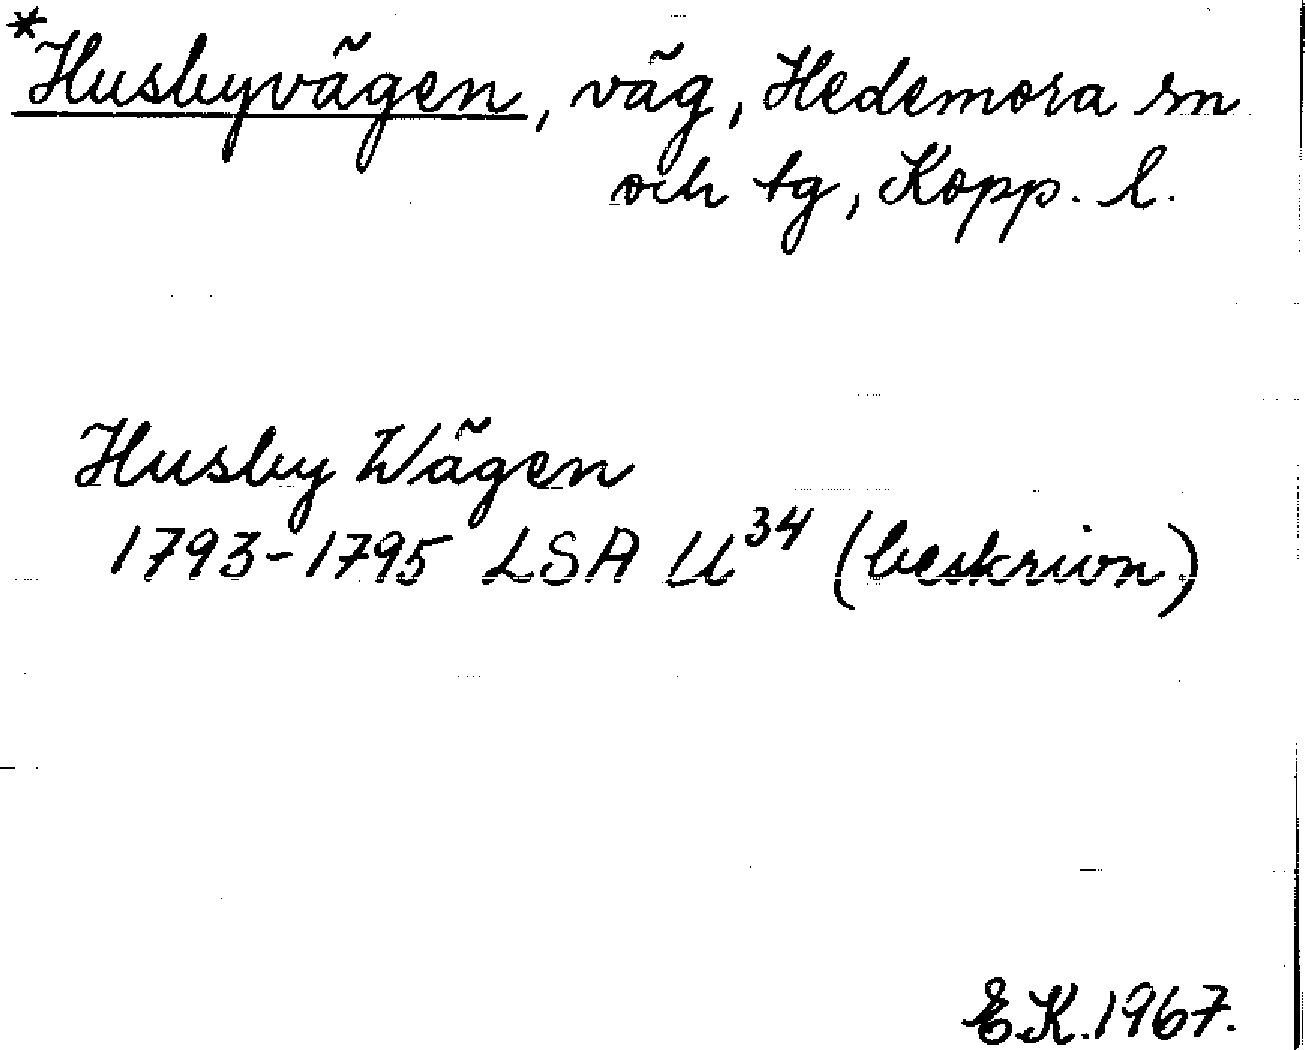 *Husbyvägen, väg, Hedemora sn
och tg, Kopp. l.
Husby Wägen
1793-1795 LSA U34 (beskrivn)
E.K. 1967.